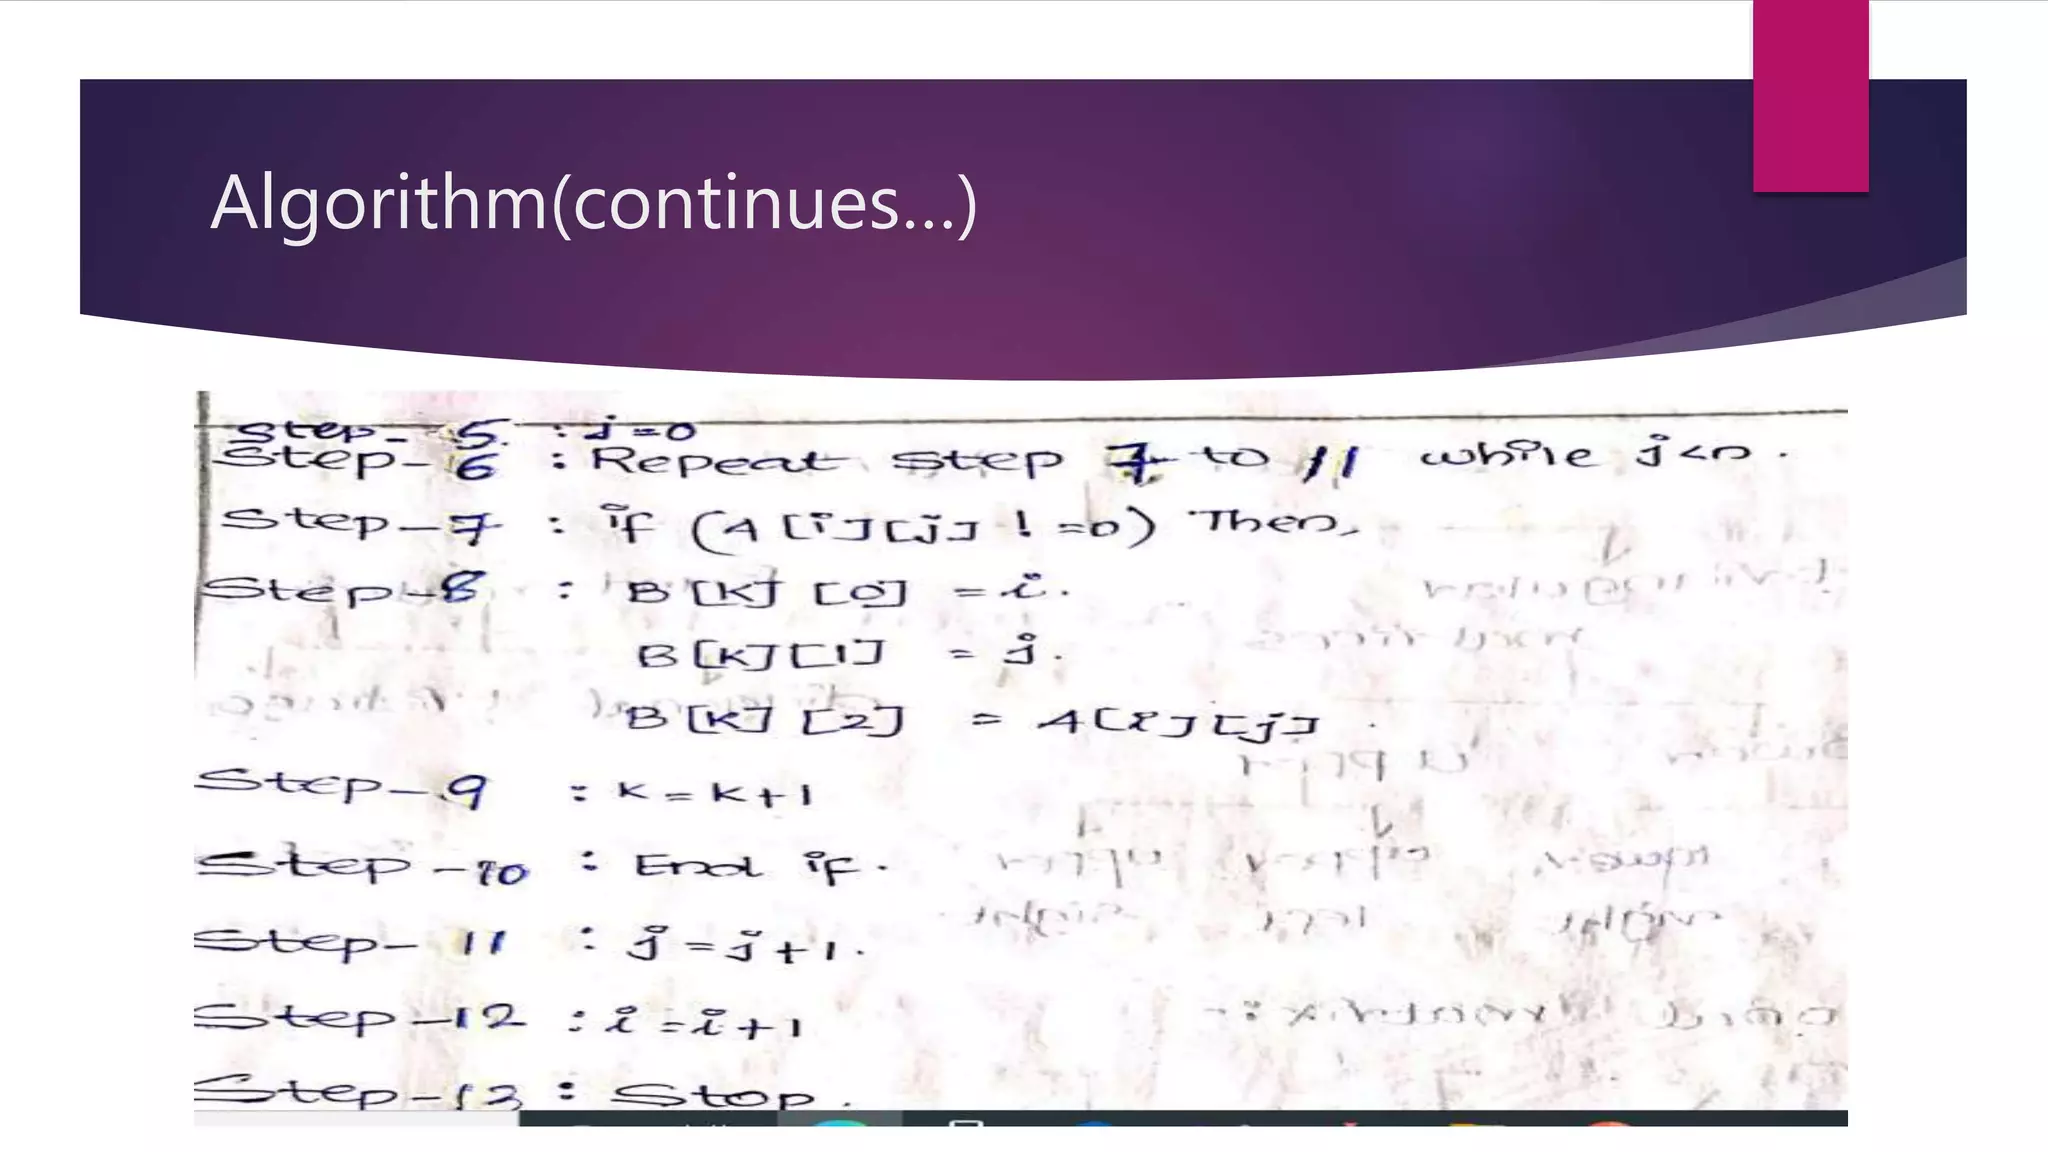 Algorithm(continues...)
Step- 5 : j=0
Step- 6 : Repeat step 7 to 11 while j<n.
Step-7 : if (A[i][j] !=0) Then,
Step-8 : B[K] [0] =i.
B[K][1] = j.
B[K] [2] = A[i][j] .
Step-9 : K=K+1
Step-10 : End if.
Step- 11 : j=j+1.
Step-12 : i=i+1
Step-13 : Stop.